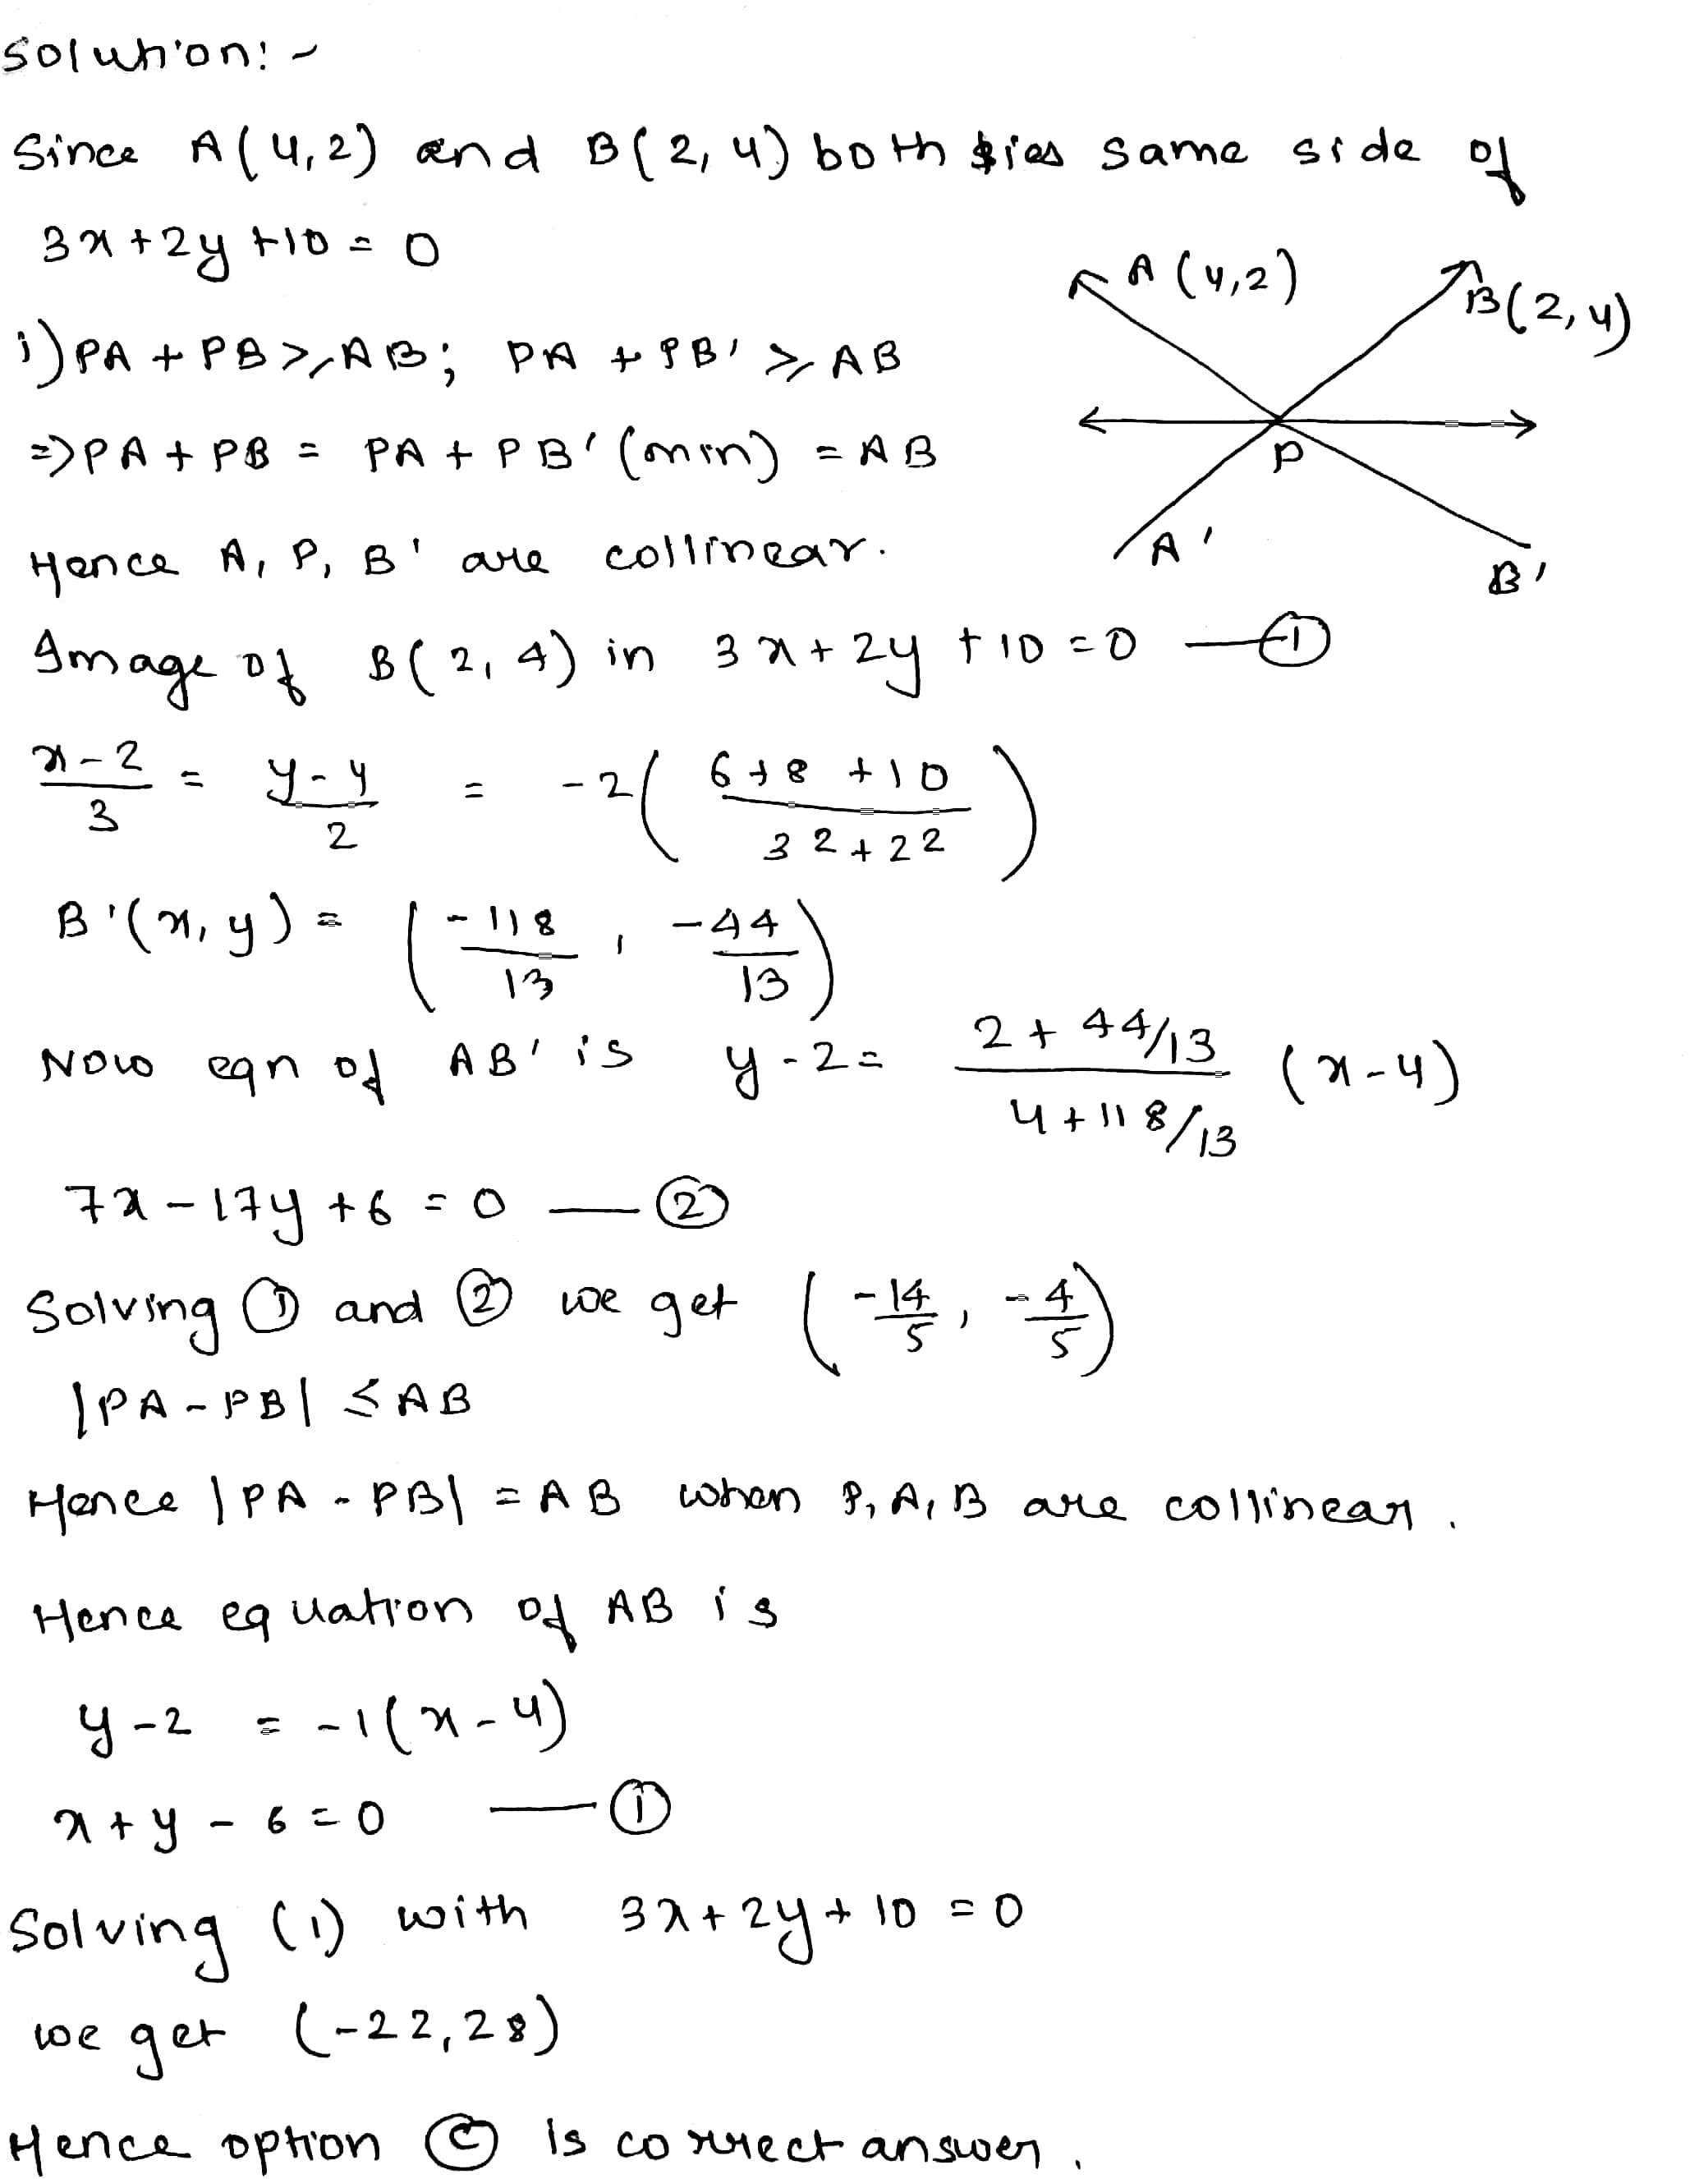 Solution:-
Since A(4,2) and B(2,4) both lies same side of
3x+2y+10=0
A(4,2)
B(2,4)
i) PA + PB ≥ AB; PA + PB' ≥ AB
⇒ PA + PB = PA + PB' (min) = AB
P
Hence A, P, B' are collinear.
A'
B'
Image of B(2,4) in 3x+2y+10=0 —①
(x-2)/3 = (y-4)/2 = -2((6+8+10)/(3^2+2^2))
B'(x,y) = (-118/13, -44/13)
Now eqn of AB' is y-2 = (2+44/13)/(4+118/13) (x-4)
7x-17y+6=0 —②
Solving ① and ② we get (-14/5, -4/5)
|PA-PB| ≤ AB
Hence |PA-PB| = AB when P, A, B are collinear.
Hence equation of AB is
y-2 = -1(x-4)
x+y-6=0 —①
Solving (1) with 3x+2y+10=0
we get (-22,28)
Hence option Ⓒ is correct answer.